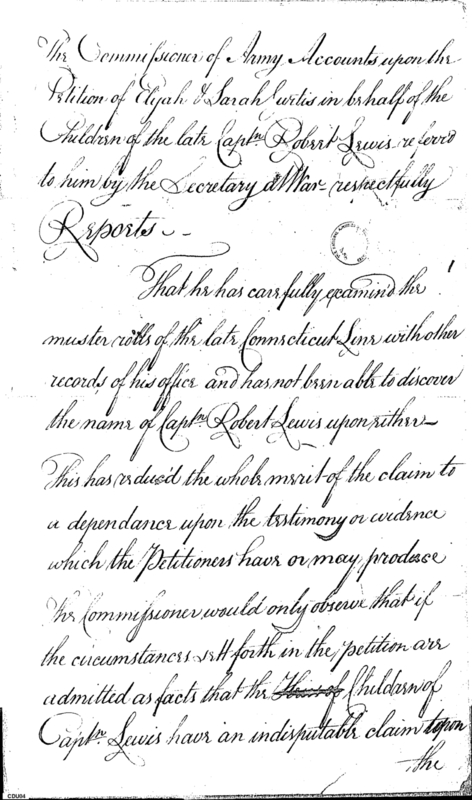 The Commissioner of Army Accounts upon the
Petition of Elijah & Sarah Curtis in behalf of the
Children of the late Captn Robert Lewis referr'd
to him by the Secretary at War respectfully
Reports —
That he has carefully examin'd the
muster rolls of the late Connecticut Line with other
records of his office and has not been able to discover
the name of Captn Robert Lewis upon either —
This has reduc'd the whole merit of the claim to
a dependance upon the testimony or evidence
which the Petitioners have or may produce
The Commissioner would only observe that if
the circumstances sett forth in the petition are
admitted as facts that the Heirs of Children of
Captn Lewis have an indisputable claim upon
the
CDU84